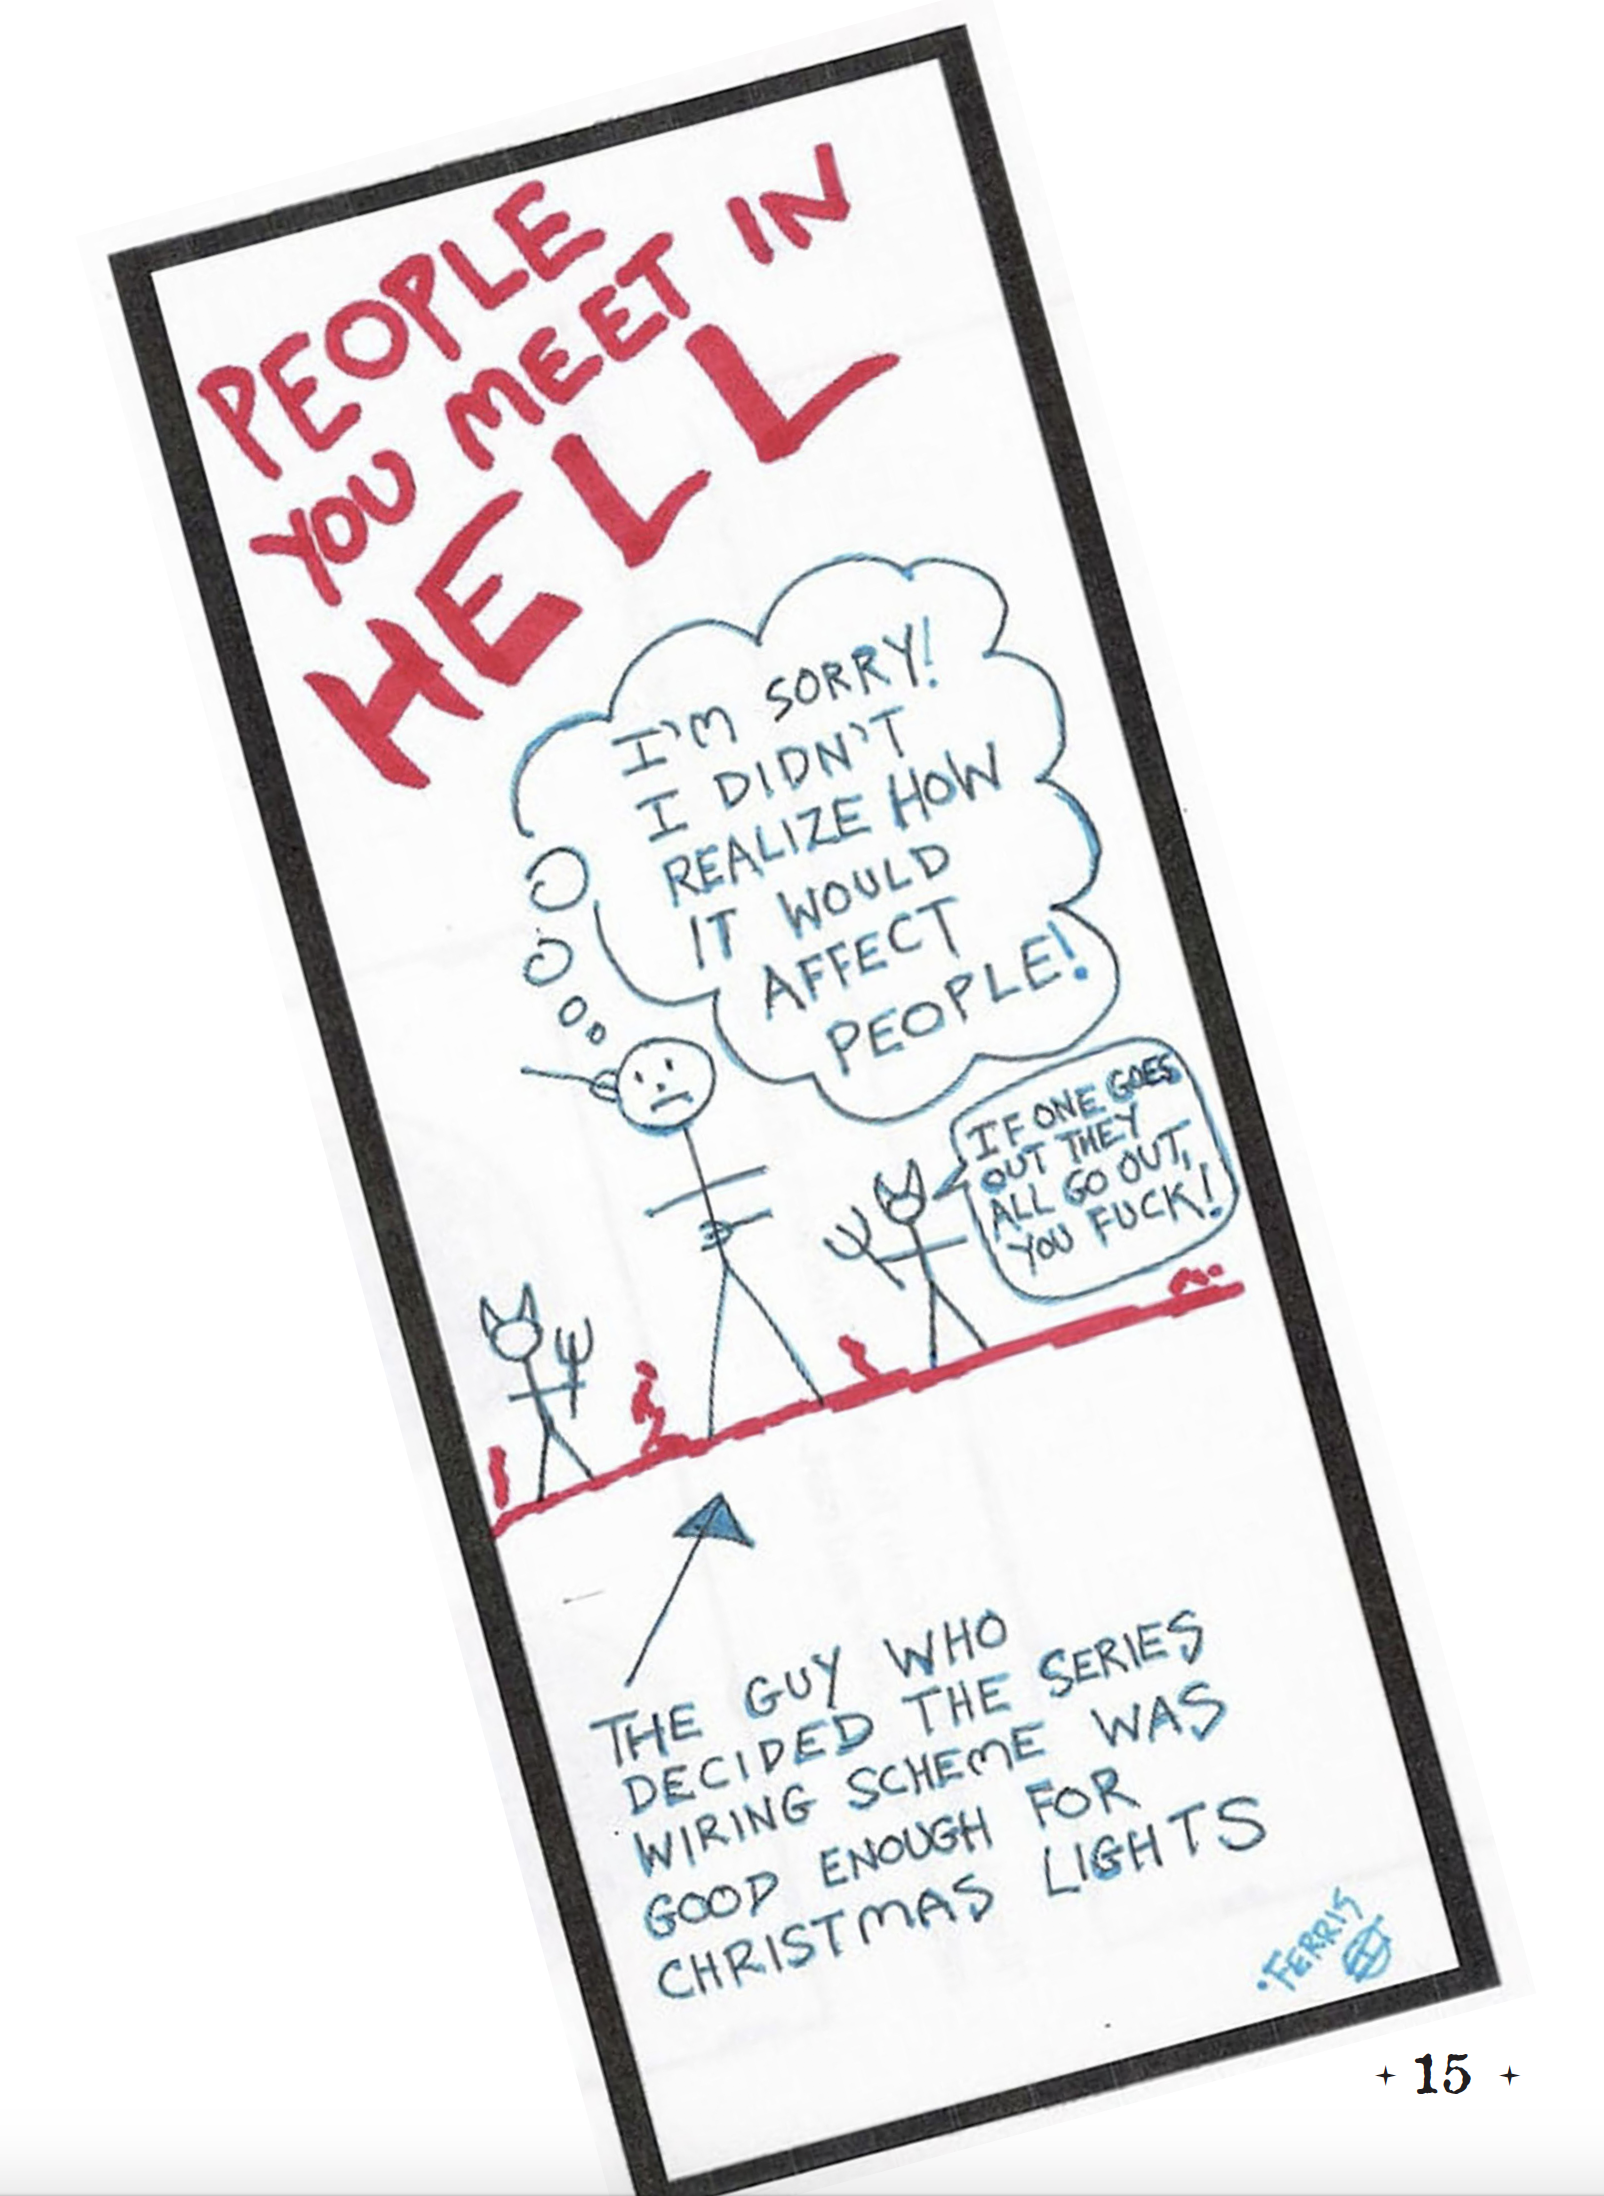 PEOPLE
YOU MEET IN
HELL
I'M SORRY!
I DIDN'T
REALIZE HOW
IT WOULD
AFFECT
PEOPLE!
IF ONE GOES
OUT THEY
ALL GO OUT,
YOU FUCK!
THE GUY WHO
DECIDED THE SERIES
WIRING SCHEME WAS
GOOD ENOUGH FOR
CHRISTMAS LIGHTS
·FERRIS
15